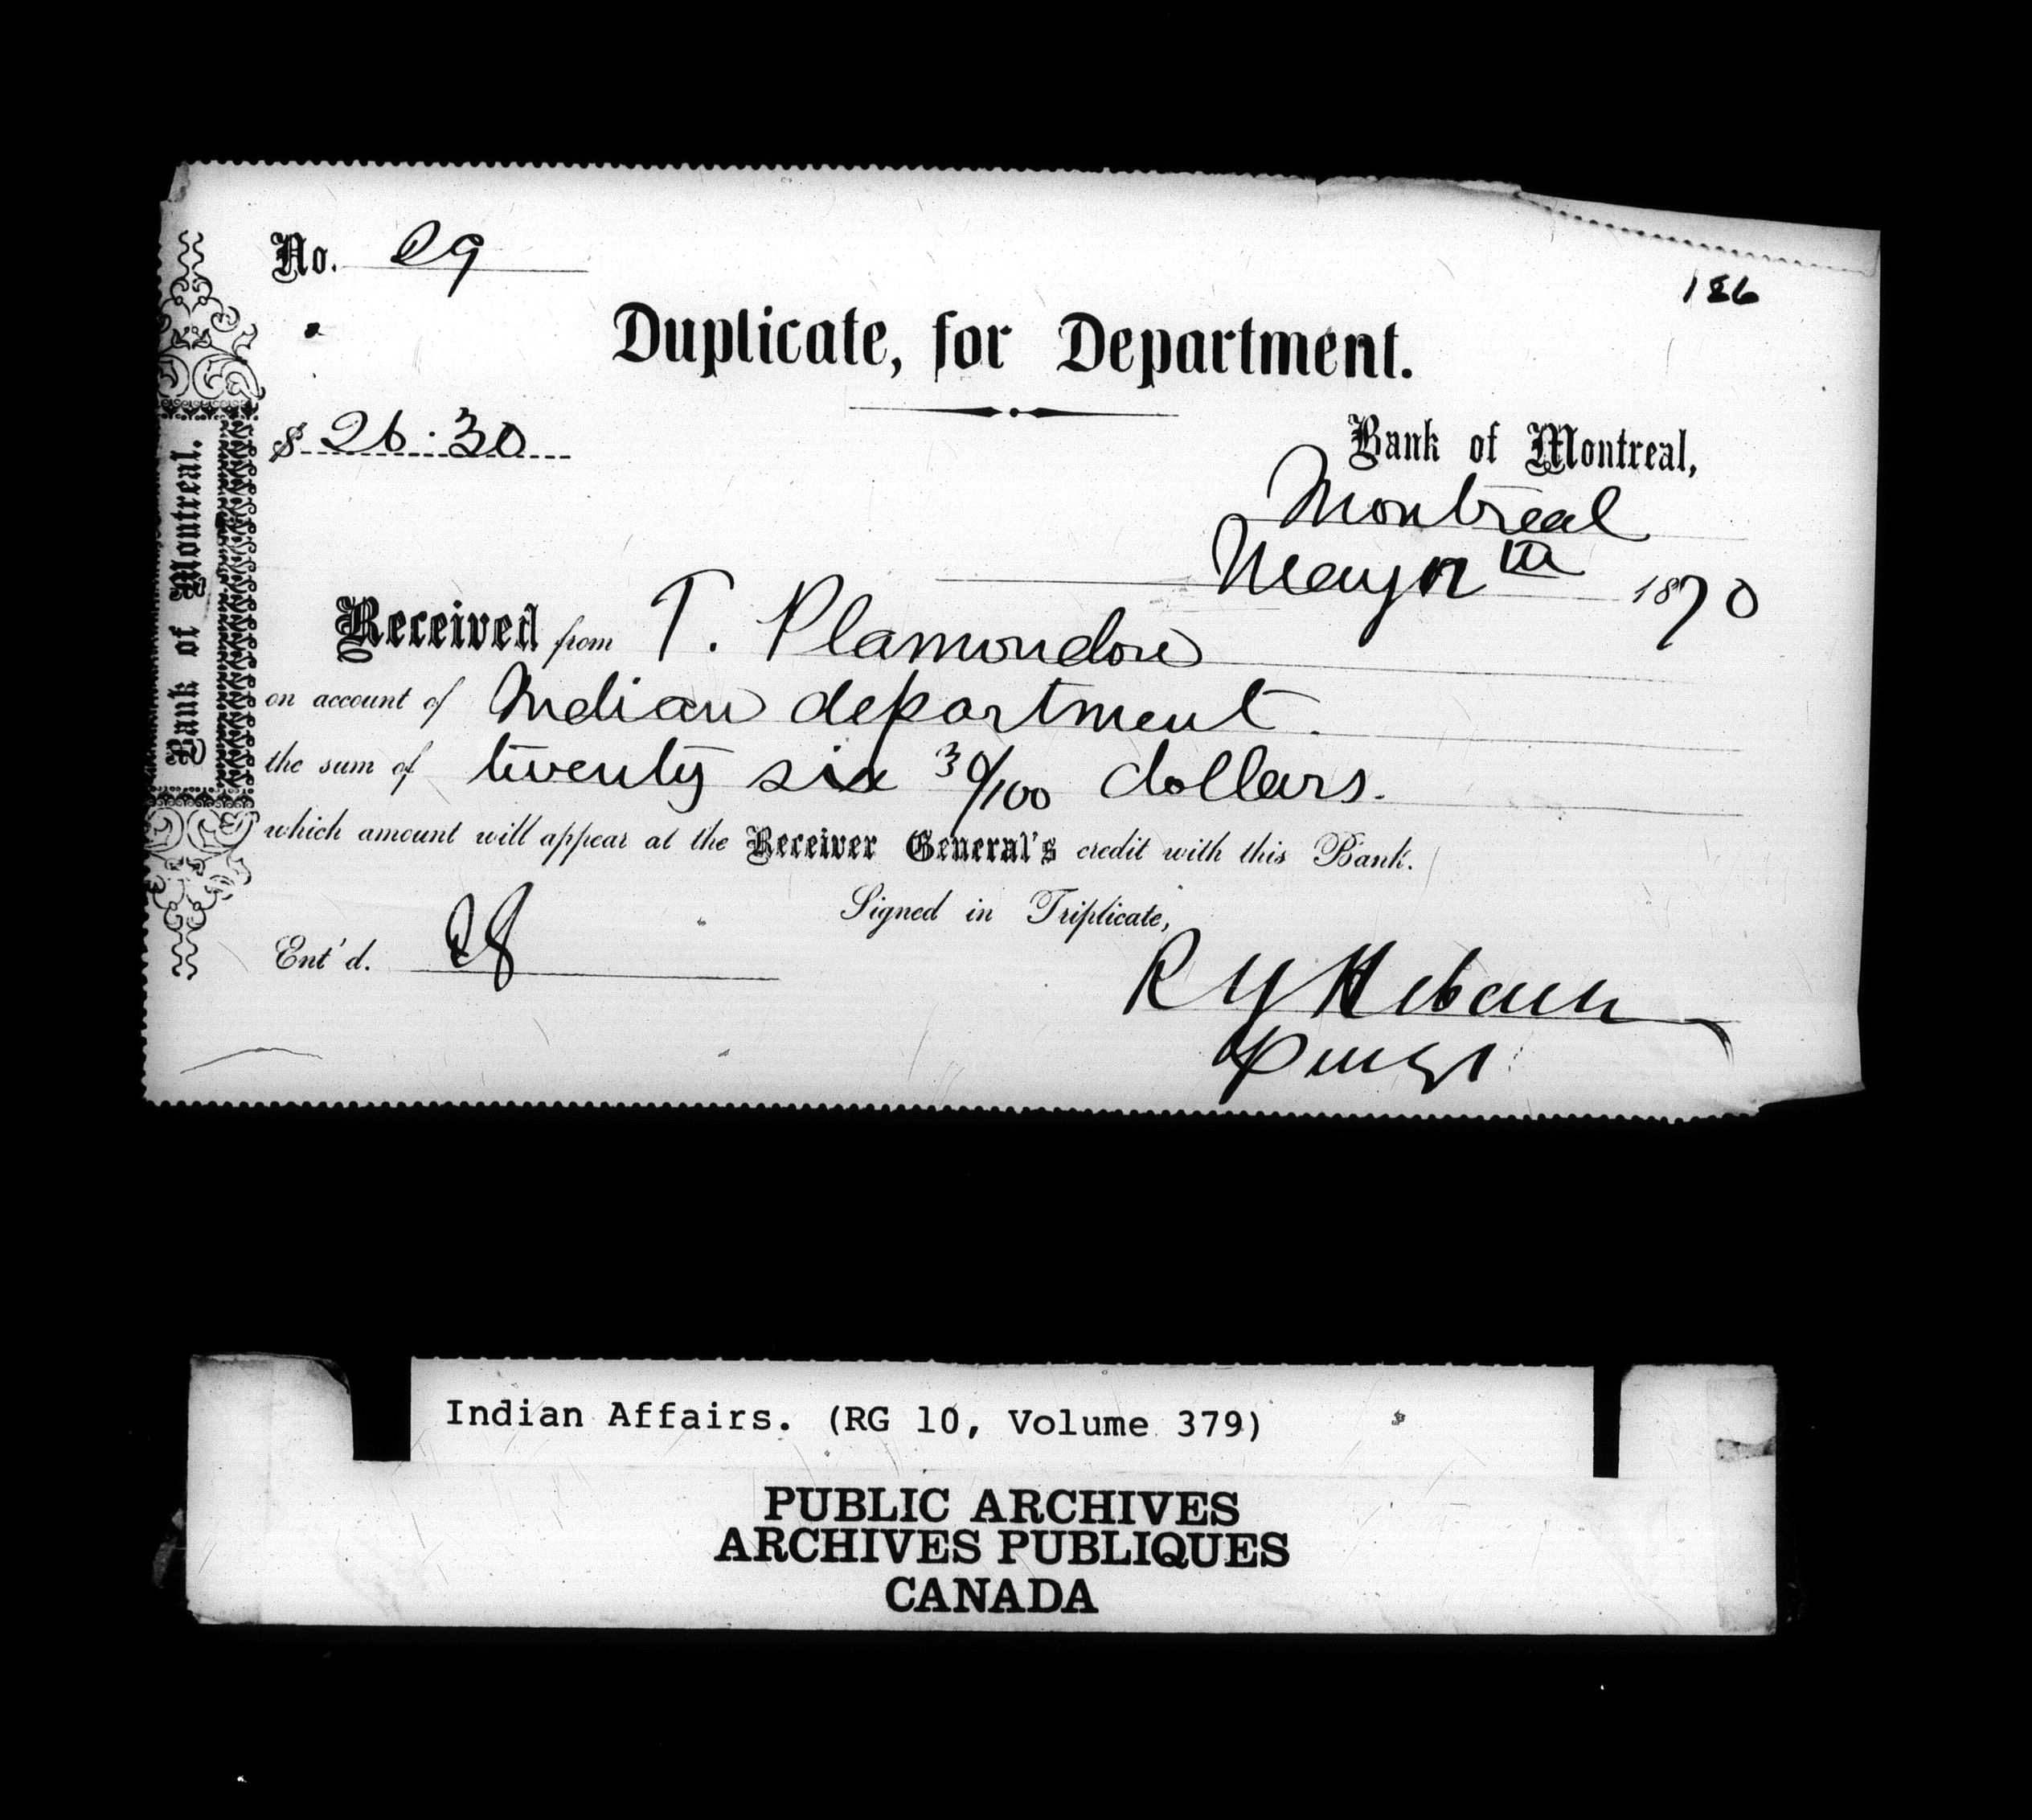 No. 29
186
Duplicate, for Department.
$ 26:30
Bank of Montreal,
Montreal
May 12th 1870
Received from T. Plamondon
on account of Indian department.
the sum of twenty six 30/100 dollars.
which amount will appear at the Receiver General's credit with this Bank.
Signed in Triplicate,
Ent'd.
R Y Hebden
Bank of Montreal.
Indian Affairs. (RG 10, Volume 379)
PUBLIC ARCHIVES
ARCHIVES PUBLIQUES
CANADA